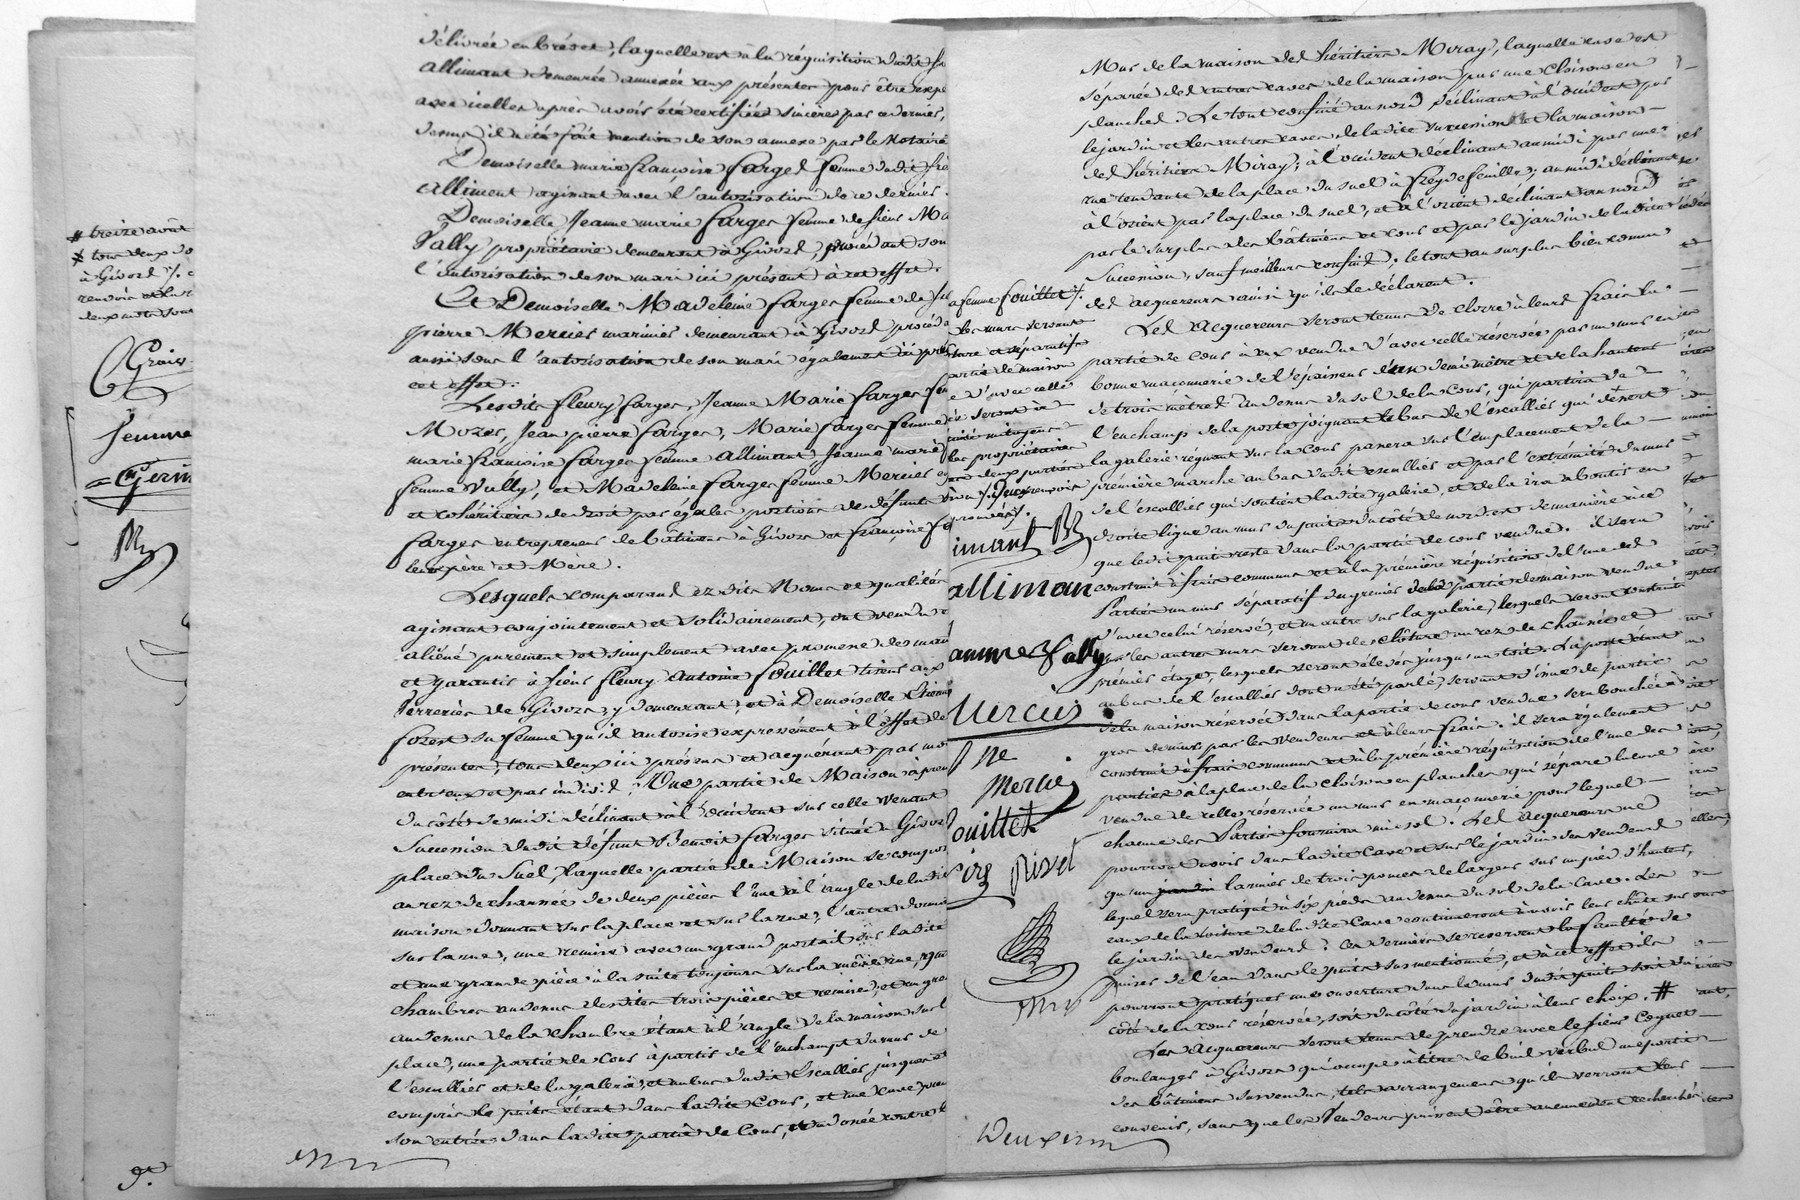 # treize août
# tous deux do
à Givord /. e
renvoie et la r
deux mots
Grais
femme
Germ
délivrée en brévet, laquelle est à la réquisition dudit
allimant demeurée annexée aux présentes pour être
avec icelles après avoir été certifiée sincère par ce dernier,
desus il a été fait mention de son annexe par le Notaire
Demoiselle marie françoise farges femme dudit
alliment agissant avec l'autorisation de ce dernier.
Demoiselle Jeanne marie farges femme de sieur
Vally propriétaire demeurant à Givord, procédant sous
l'autorisation de son mari ici présent à cet effet.
Et Demoiselle Madeleine farges femme de
pierre Mercier marinier demeurant à Givord
aussi sous l'autorisation de son mari également ici
cet effet.
Lesdits fleury farges, Jeanne Marie farges
Mozer, Jean pierre farges, Marie farges femme
marie francoise farges femme allimant Jeanne marie
femme Vally, et Madeleine farges femme Mercier
et cohéritiers de droit par égales portions de défunt
farges entrepreneur de bâtimens à Givors et françoise
leurs père et Mère.
Lesquels comparans ez dits Noms et qualités
agissant conjointement et solidairement, ont vendu
aliéné purement et simplement avec promesse de
et garantir à sieur fleury Antoine fouillet tireur aux
Verreries de Givors y demeurant, et à Demoiselle
forest sa femme qu'il autorise expressément à l'effet des
présentes, tous deux ici présens et acquérant par
entr'eux et par indivis, Une partie de Maison à
du côté de midi déclinant à l'occident sur celle venant
Succession dudit défunt Benoit farges située à Givors
place du Suel, laquelle partie de Maison se compose
au rez de chaussée de deux pièces l'une à l'angle de ladite
maison donnant sur la place et sur la rue, l'autre donnant
sur la rue, une remise avec un grand portail sur ladite
et une grande pièce à la suite toujours sur la même rue,
chambres au dessus desdites trois pièces et remise, et un
au dessus de la chambre étant à l'angle de la maison sur
place, une partie de cour à partir de l'enchamp du mur de
l'escallier et de la galerie, et au bas dudit Escallier jusques
compris le puits étant dans ladite Cour, et une cave,
son entrée dans ladite partie de Cour, et adossée contre
la femme fouillet /.
les murs servant
ture et séparatifs
partie de maison
d'avec celle
seront à
mitoyens
les propriétaires
deux parties
imant
alliman
amme Vally
Mercier
Mercier
ouillet
Rivet
Mur de la maison des héritiers Miray, laquelle cave est
séparée des autres caves de la maison par une cloison en
planches. Le tout confiné au nord déclinant à l'occident par
le jardin et les autres caves de ladite succession et la maison
des héritiers Miray; à l'occident déclinant au midi par une
rue tendante de la place du suel à freydefeuille; au midi déclinant
à l'orient par la place du suel, et à l'orient déclinant au nord
par le surplus des bâtimens et cour et par le jardin de ladite
Succession, sauf meilleurs confins; le tout au surplus bien connu
des acquereurs ainsi qu'ils le déclarent.
Les Acquereurs seront tenus de clorre à leurs frais la
partie de cour à eux vendue d'avec celle réservée par un mur en
bonne maçonnerie de l'épaisseur d'un demi mètre et de la hauteur
de trois mètres au dessus du sol de la cour, qui partira de
l'enchamp de la porte joignant le bas de l'escallier qui dessert
la galerie régnant sur la Cour passera sur l'emplacement de la
première marche au bas dudit escallier et par l'extrémité du mur
de l'escallier qui soutient ladite galerie, et de là ira aboutir en
droite ligne au mur du puits du côté de nord de manière à ce
que ledit puits reste dans la partie de cour vendue. il sera
construit à frais communs et à la première réquisition de l'une des
Parties un mur séparatif du grenier de la partie de maison vendue
d'avec celui réservé, et un autre sur la galerie, lesquels seront construits
les autres murs servant de clôture au rez de chaussée et
premier étage, lesquels seront élevés jusqu'au toit. La porte étant
au bas de l'escallier dont a été parlé, servant d'issue de partie
de la maison réservée dans la partie de cour vendue sera bouchée à
gros de murs par les vendeurs et à leurs frais. il sera également
construit à frais communs et à la première réquisition de l'une des
parties à la place de la cloison en planches qui sépare la cave
vendue de celle réservée un mur en maçonnerie pour lequel
chacune des Parties fournira mi sol. Les acquereurs ne
pourront avoir dans ladite Cave et sur le jardin des vendeurs
qu'un larmier de trois pouces de largeur sur un pied d'hauteur,
lequel sera pratiqué à six pieds au dessus du sol de la Cave. Les
eaux de la toiture de ladite Cave continueront d'avoir leur chûte sur
le jardin des vendeurs. Ces derniers se réservent la faculté de
puiser de l'eau dans le puits sus mentionné, et à cet effet ils
pourront pratiquer une ouverture dans le mur dudit puits soit du
côté de la cour réservée, soit du côté du jardin à leur choix. #
Les acquereurs seront tenus de prendre avec le sieur Coquet
boulanger à Givors qui occupe à titre de bail verbal une partie
des bâtimens sus vendus, tels arrangemens qu'ils verront leur
convenir, sans que les Vendeurs puissent être aucunement recherchés